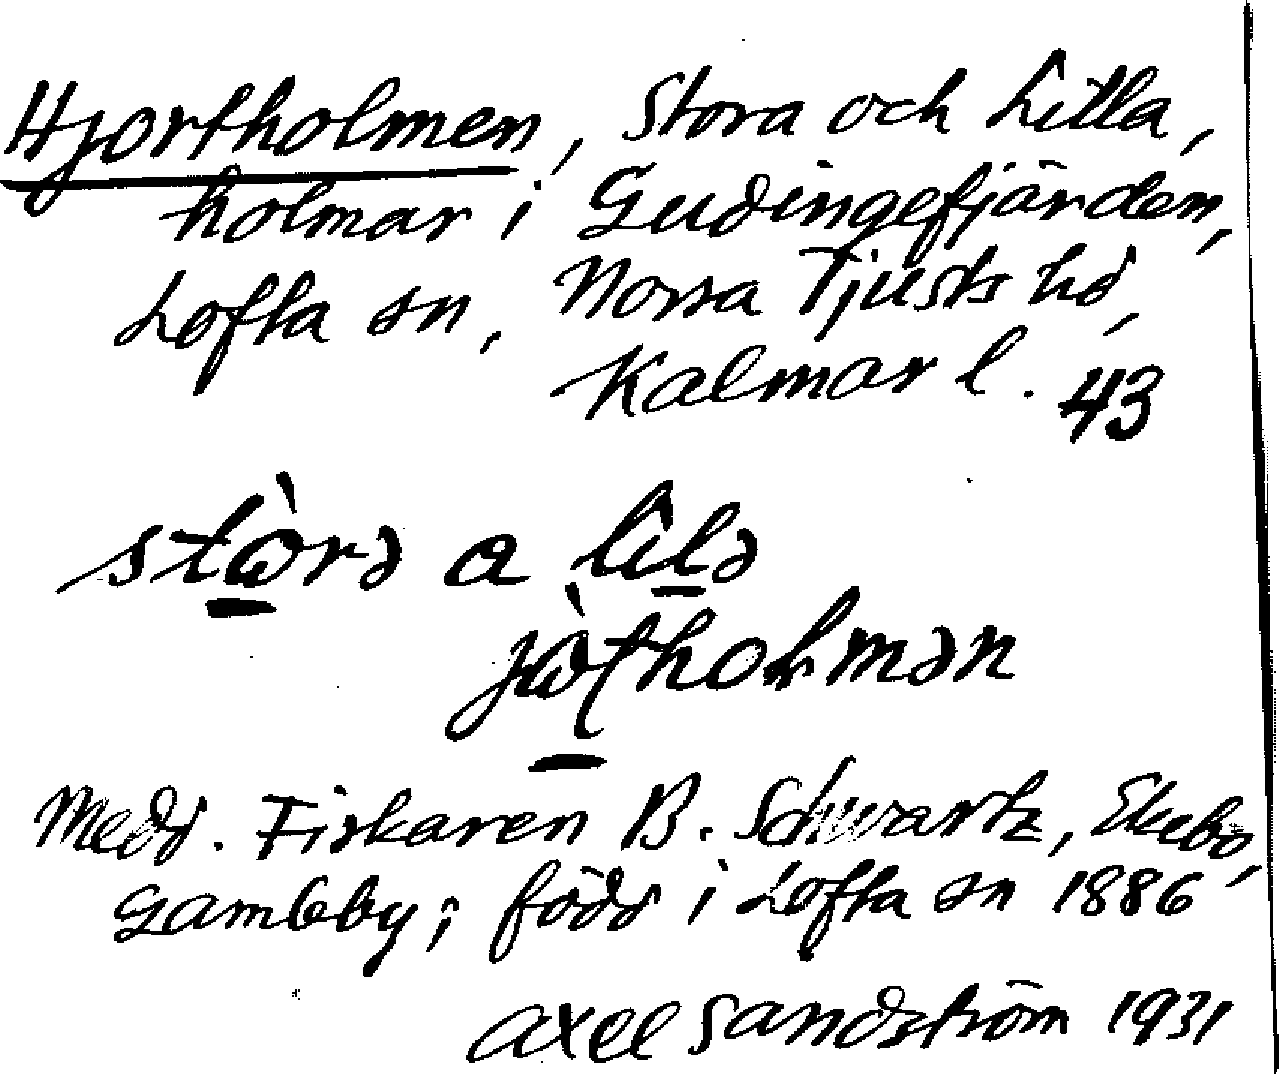 Hjortholmen, Stora och Lilla,
holmar i Gudingefjärden,
Lofta sn, Norra Tjusts hd,
Kalmar l. 43
stòrə a lilə
jòtholmən
Medd. Fiskaren B. Schwartz, Ekebo,
Gamleby; född i Lofta sn 1886
Axel Sandström 1931